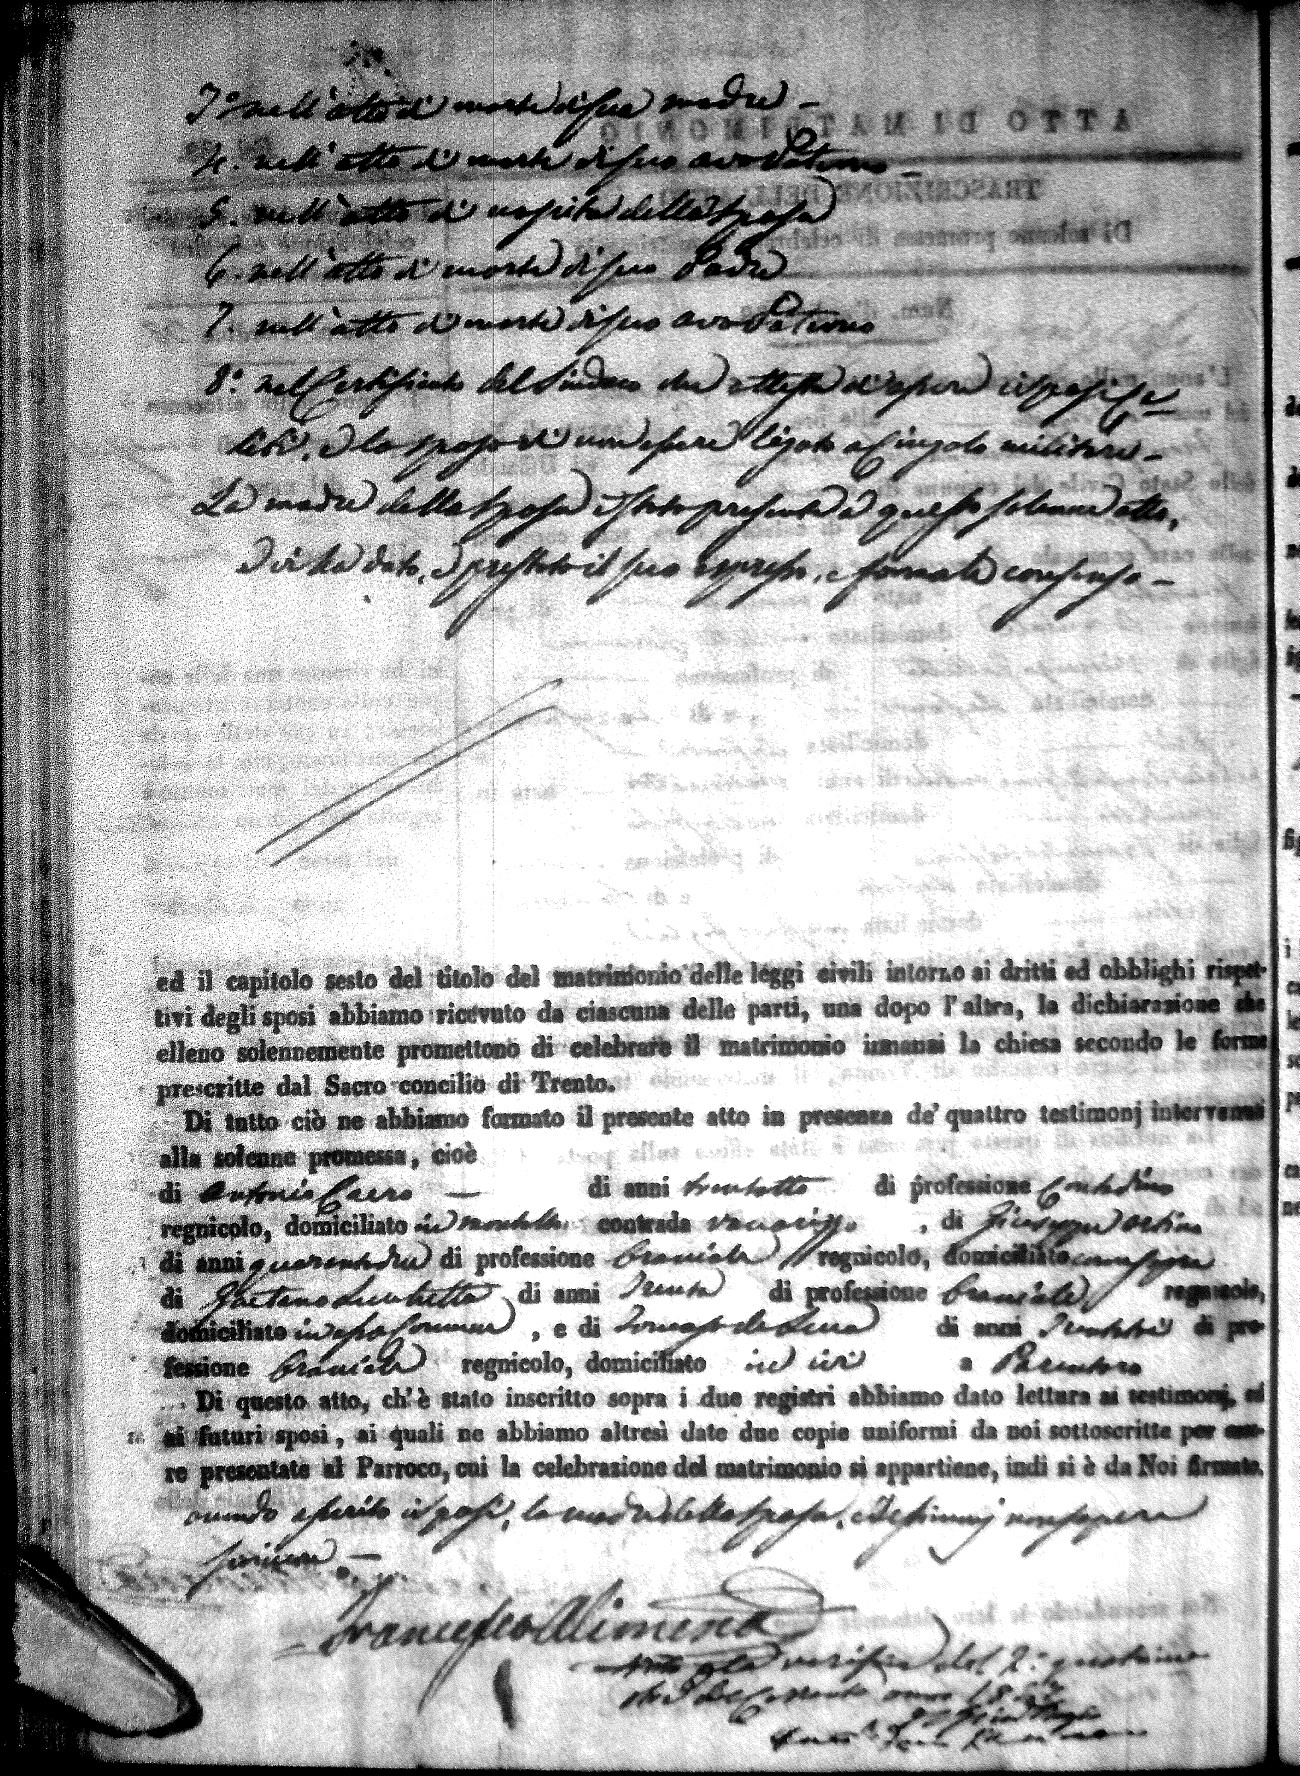 3.° nell'atto di morte di sua madre –
4. nell'atto di morte di suo avo Paterno –
5. nell'atto di nascita della sposa
6. nell'atto di morte di suo Padre
7. nell'atto di morte di suo avo Paterno
8.° nel Certificato del Sindaco che attesta d'essere i sposi
e lo sposo di non essere ligato a Cingolo militare –
La madre della sposa è stata presente a questo solenne atto,
e vi ha dato, e prestato il suo espresso, e formale consenso –
ed il capitolo sesto del titolo del matrimonio delle leggi civili intorno ai dritti ed obblighi rispet-
tivi degli sposi abbiamo ricevuto da ciascuna delle parti, una dopo l'altra, la dichiarazione che
elleno solennemente promettono di celebrare il matrimonio innanzi la chiesa secondo le forme
prescritte dal Sacro concilio di Trento.
Di tutto ciò ne abbiamo formato il presente atto in presenza de' quattro testimonj intervenuti
alla solenne promessa, cioè
di Antonio – di anni trentotto di professione Contadino
regnicolo, domiciliato in contrada , di Giuseppe
di anni quarantadue di professione Bracciale regnicolo, domiciliato
di Gaetano di anni Trenta di professione Bracciale regnicolo,
domiciliato in esso Comune , e di Tomaso de Luca di anni di pro-
fessione Bracciale regnicolo, domiciliato in ivi a
Di questo atto, ch'è stato inscritto sopra i due registri abbiamo dato lettura ai testimonj, ed
ai futuri sposi, ai quali ne abbiamo altresì date due copie uniformi da noi sottoscritte per esse-
re presentate al Parroco, cui la celebrazione del matrimonio si appartiene, indi si è da Noi firmato,
avendo asserito i sposi, la madre della sposa, e Testimonj non sapere
scrivere. –
Francesco Alimena
verifica del 2.°